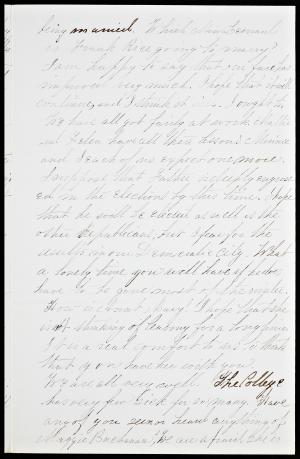 being married. Which Miss Leonard
is Frank Rice going to marry?
I am happy to say that my face has
improved very much. I hope that it will
continue, and I think it will. I ought to
We have all got fairly at work. Hattie
and Helen have all their lessons. Minnie
and I each of us expect one more.
I suppose that Father is deeply engross-
ed in the elections by this time. I hope
that he will be elected as well as the
other Republicans, but I fear for the
results in our Democratic City. What
a lonely time you will have if he does
have to be gone most of the winter.
How is Aunt ? I hope that she
is not thinking of leaving for a long time.
It is a real comfort to us to think
that you have her with you.
We are all very well. The College
has very few sick for so many. Have
any of you seen or heard anything of
Maggie Buchanan? We are afraid she is